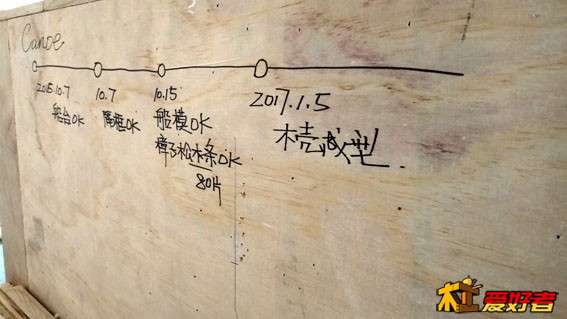 Canoe
2015.10.7
10.7
10.15
2017.1.5
船台OK
船模OK
木壳成型
樟子松木条OK
80片
木工爱好者